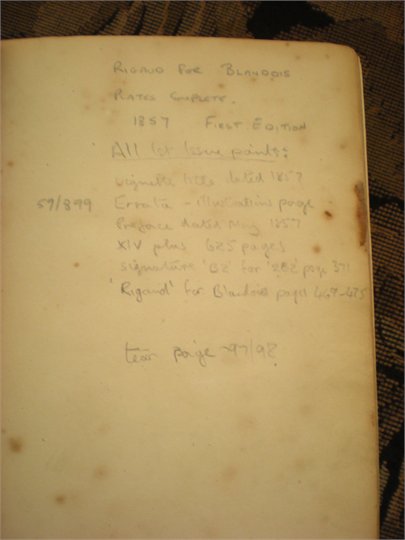 RIGAUD FOR BLANDOIS
PLATES COMPLETE.
1857 FIRST EDITION
All 1st Issue points:
vignette title dated 1857
59/899 Errata - illustrations page
Preface dated May 1857
XIV plus 625 pages
signature 'B2' for '2B2' page 371
'Rigaud' for Blandois pages 469-475
tear page 97/98